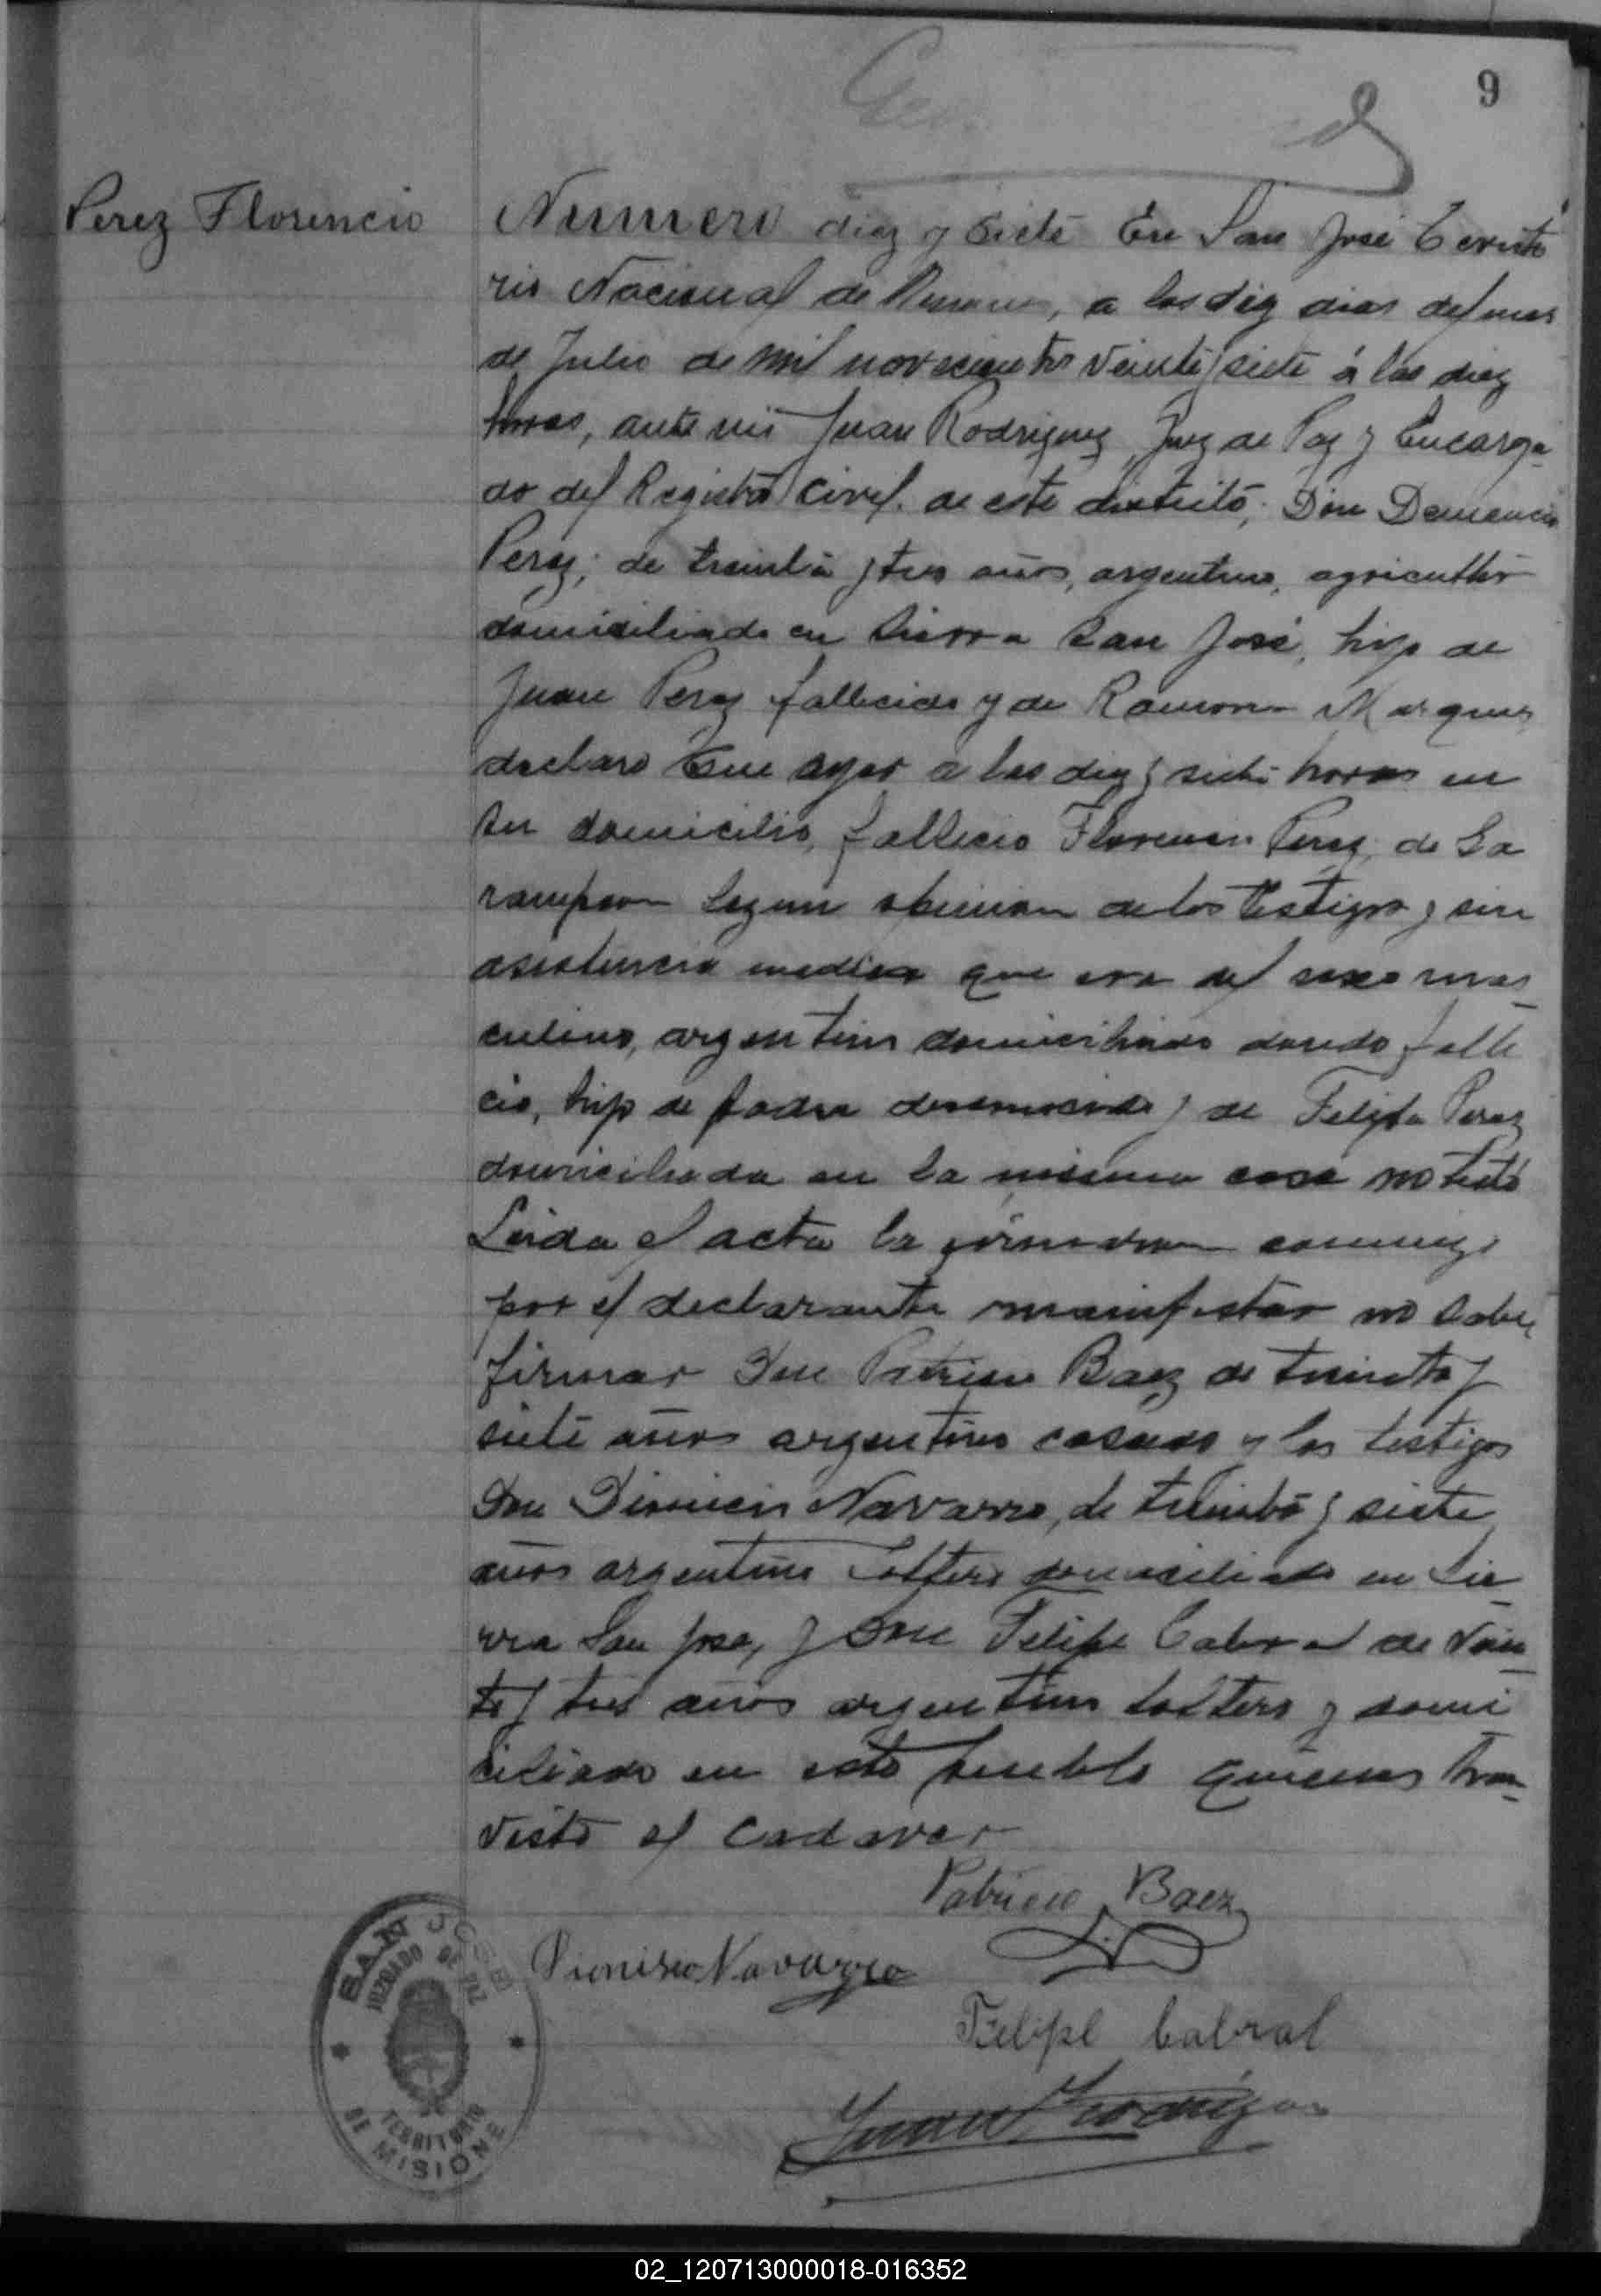 9
Perez Florencio
Numero diez y siete En San José Territo
rio Nacional de Misiones, a los diez dias del mes
de Julio de mil novecientos veinte y siete á las diez
horas, ante mi Juan Rodriguez Juez de Paz y Encarga-
do del Registro Civil de este distrito, Don
Perez, de treinta y tres años, argentino, agricultor
domiciliado en Sierra San José, hijo de
Juan Perez fallecido y de Ramona Marques
declaro Que ayer a las diez y siete horas en
su domicilio, fallecio Florencio Perez, de Sa
rampion segun opinion de los testigos y sin
asistencia medica que era del sexo mas-
culino, argentino domiciliado donde falle
cio, hijo de padre desconocido y de Felipa Perez
domiciliada en la misma casa no testó
Leida el acta la firmaron conmigo
por el declarante manifestar no saber
firmar Don Patricio Baez de treinta y
siete años argentino casado y los testigos
Don Dionicio Navarro, de treinta y siete
años argentino soltero domiciliado en Sie
rra San José, y Don Felipe Cabral de vein-
te y tres años argentino soltero y domi
ciliado en este pueblo quienes han
visto el cadaver
Patricio Baez
Dionisio Navarro
Felipe Cabral
Juan Rodriguez
SAN JOSE
JUZGADO DE PAZ
TERRITORIO
DE MISIONES
02_120713000018-016352